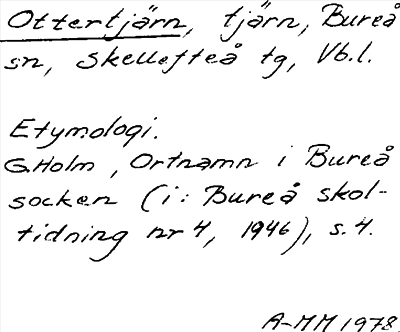 Ottertjärn, tjärn, Bureå
sn, Skellefteå tg, Vb.l.
Etymologi.
G.Holm, Ortnamn i Bureå
socken (i: Bureå skol-
tidning nr 4, 1946), s. 4.
A-MM 1978